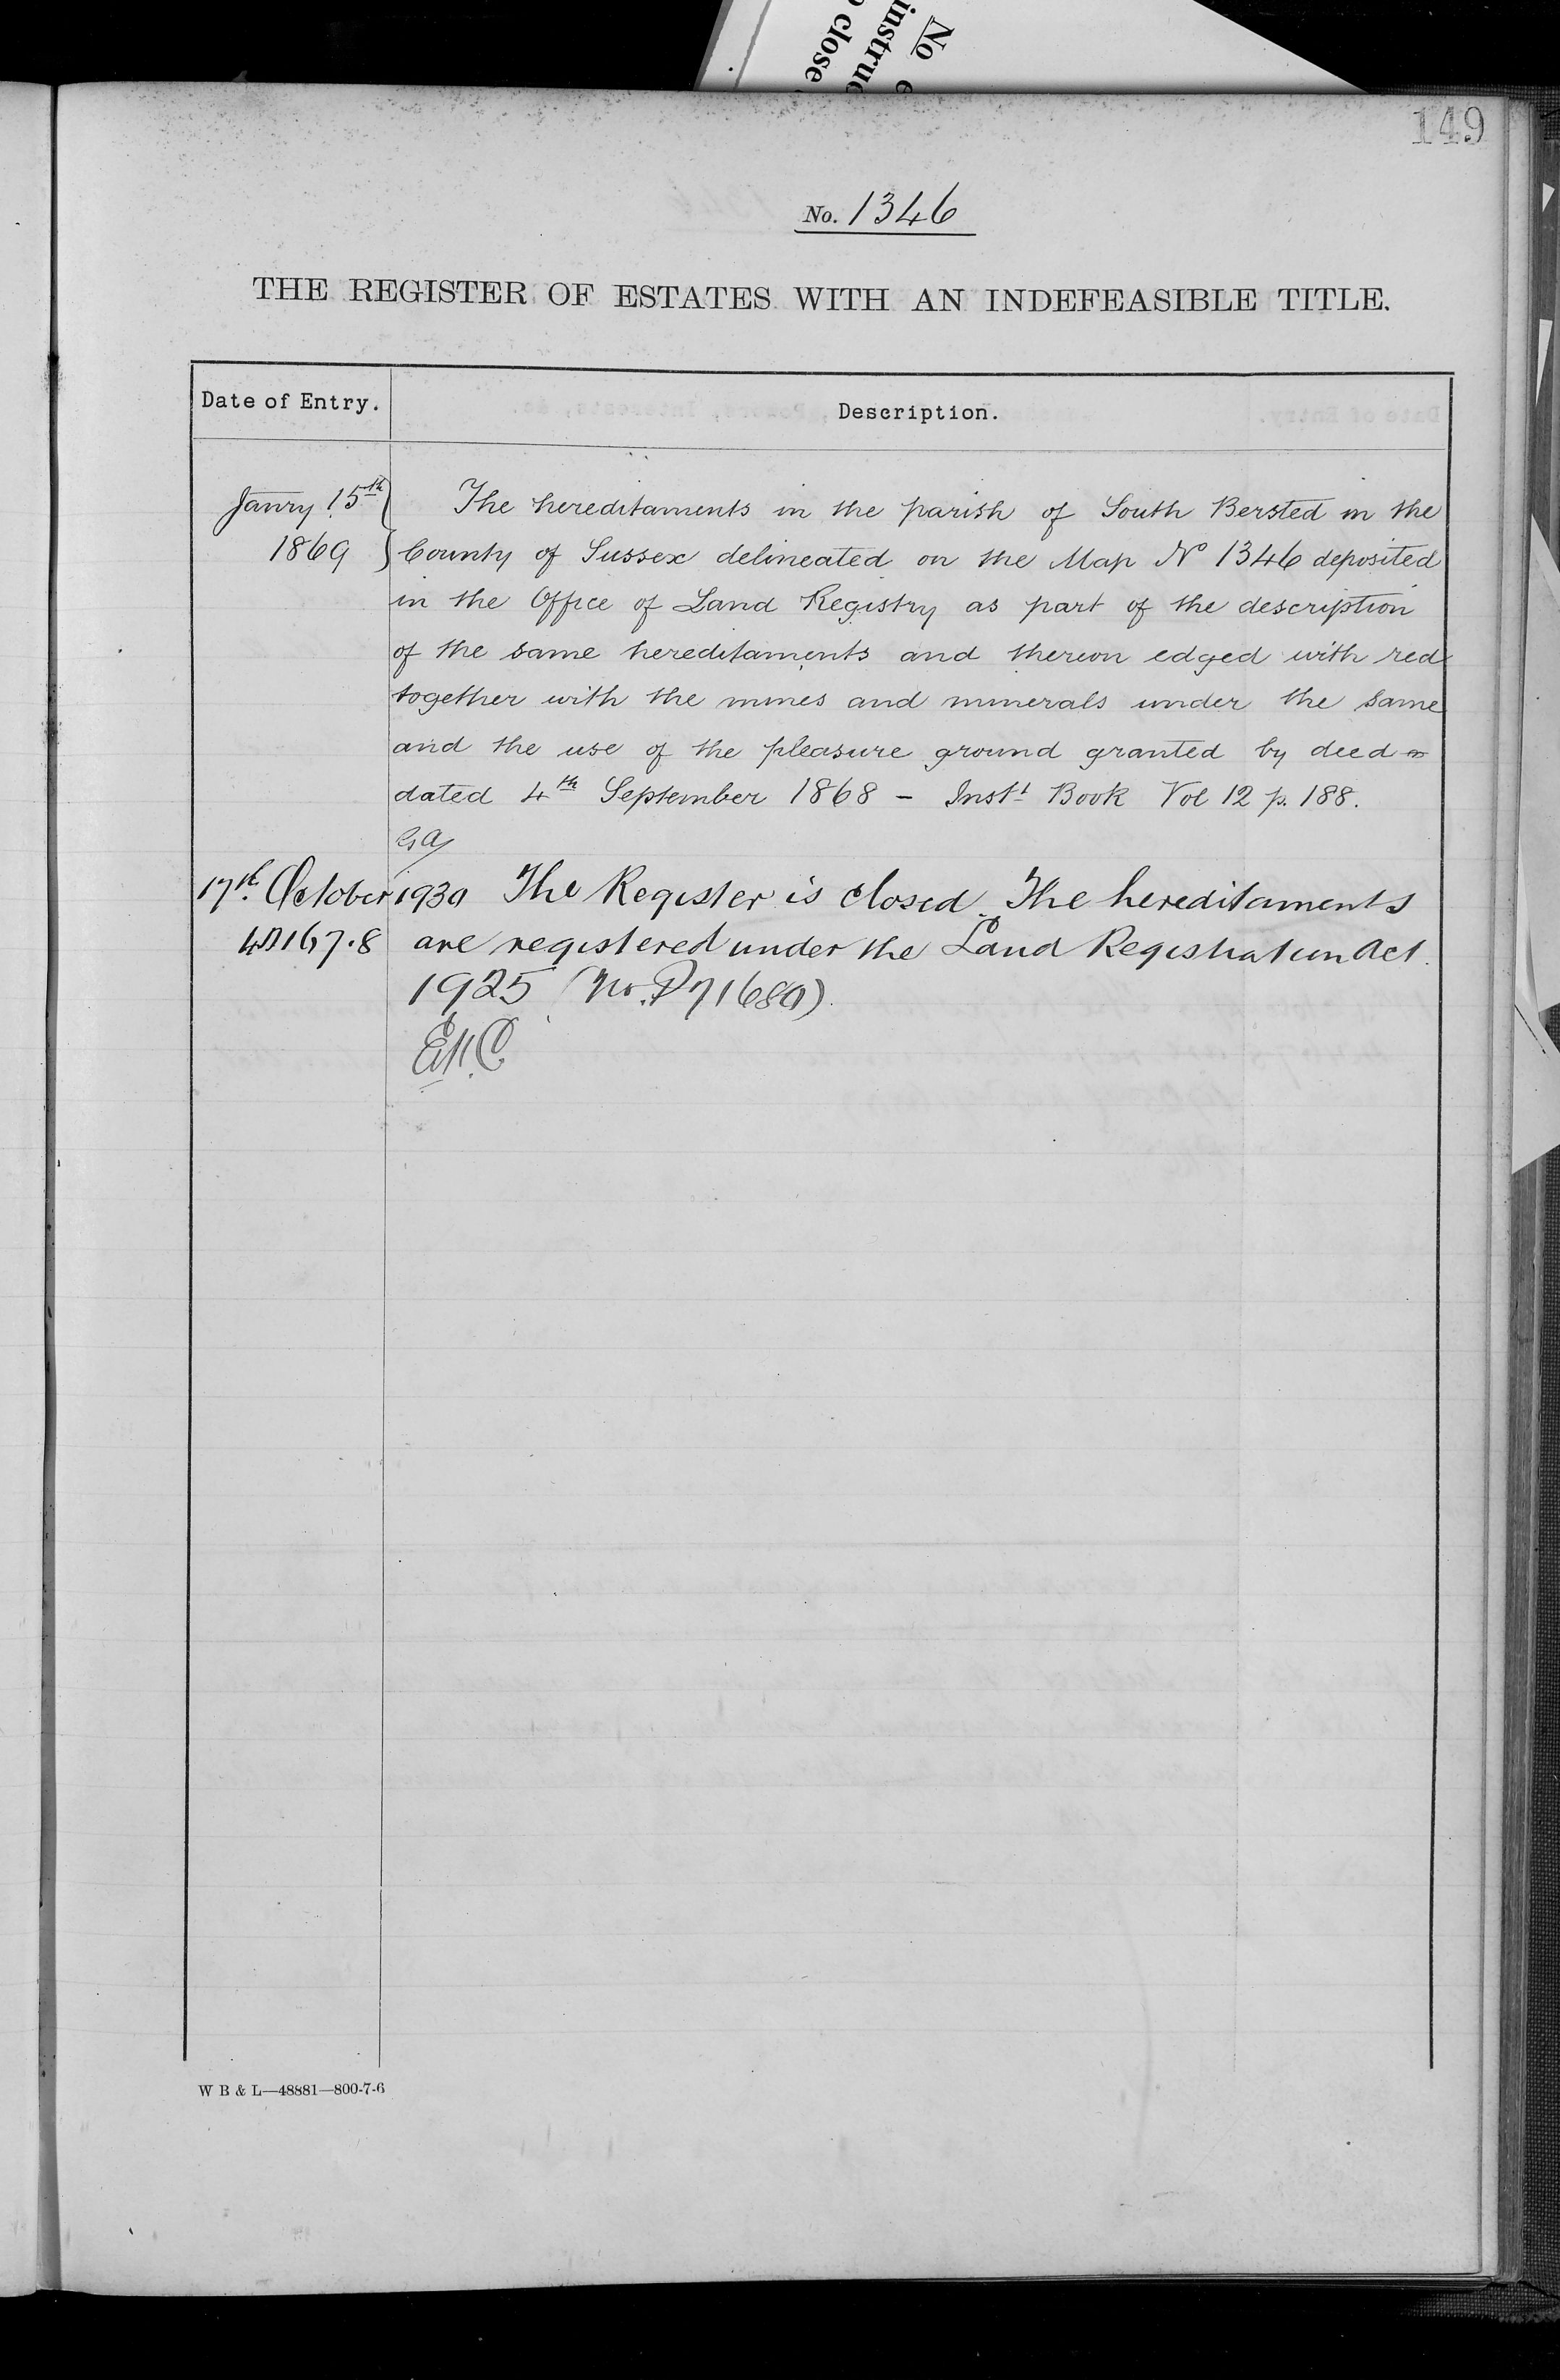 No
instruc
close
149
No. 1346
THE REGISTER OF ESTATES WITH AN INDEFEASIBLE TITLE.
Date of Entry.
Description.
Janry 15th
1869
The hereditaments in the parish of South Bersted in the
County of Sussex delineated on the Map No 1346 deposited
in the Office of Land Registry as part of the description
of the same hereditaments and thereon edged with red
together with the mines and minerals under the same
and the use of the pleasure ground granted by deed
dated 4th September 1868 - Instt Book Vol 12 p. 188.
17th October 1930 The Register is closed. The hereditaments
are registered under the Land Registration Act.
1925 (No. P71680).
W B & L—48881—800-7-6